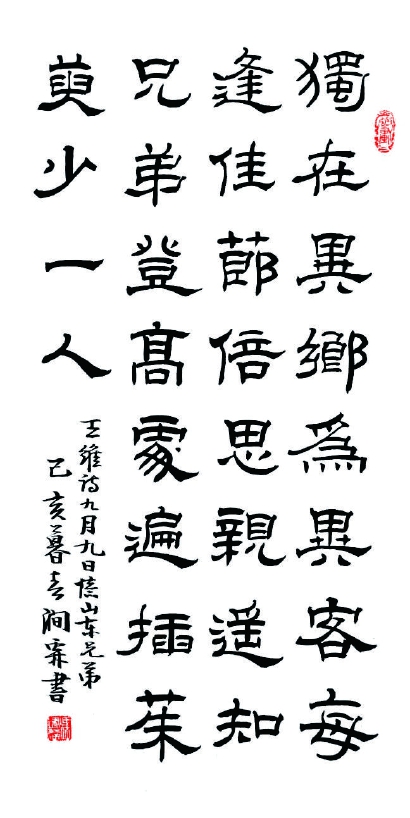 獨在異鄉爲異客每
逢佳節倍思親遥知
兄弟登髙處遍插茱
萸少一人
王維詩九月九日憶山东兄弟
己亥暮春澗書